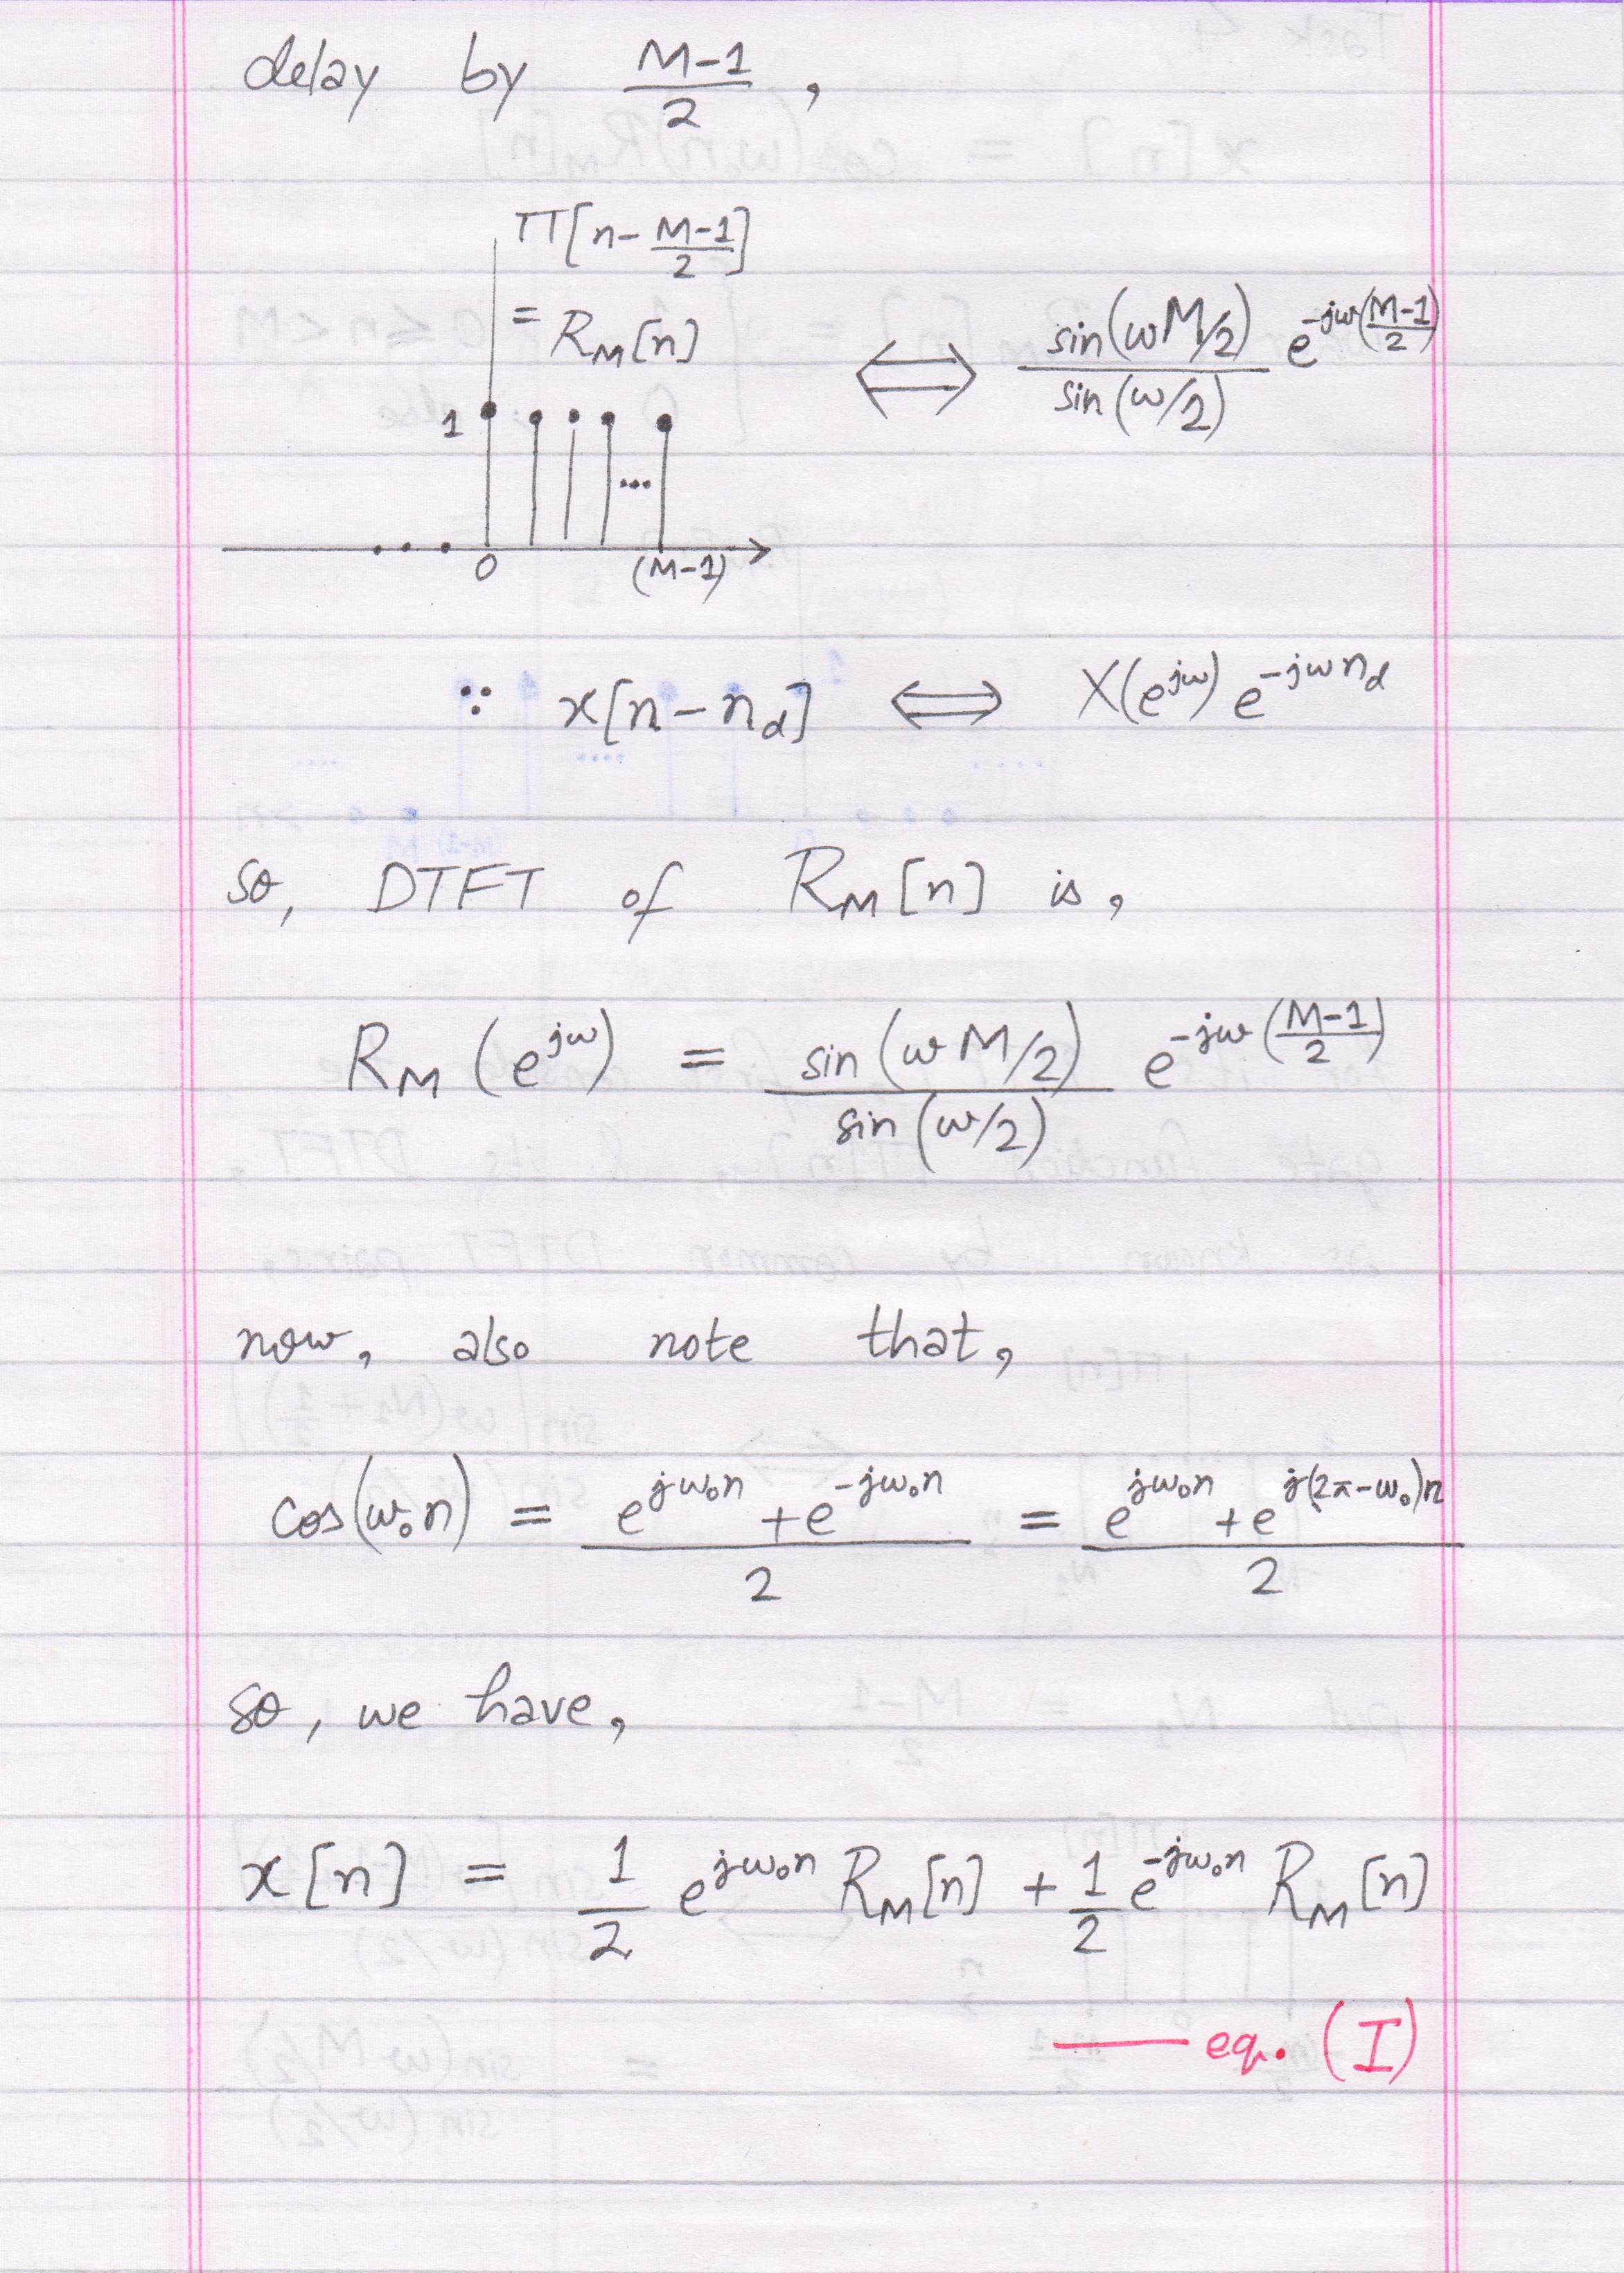 delay by (M-1)/2 ,
Π[n - (M-1)/2]
= R_M[n] ⟺ sin(ωM/2)/sin(ω/2) e^{-jω((M-1)/2)}
1 ...
. . . 0 (M-1)
∵ x[n-n_d] ⟺ X(e^{jω}) e^{-jωn_d}
so, DTFT of R_M[n] is,
R_M(e^{jω}) = sin(ωM/2)/sin(ω/2) e^{-jω((M-1)/2)}
now, also note that,
cos(ω₀n) = (e^{jω₀n} + e^{-jω₀n})/2 = (e^{jω₀n} + e^{j(2π-ω₀)n})/2
so, we have,
x[n] = 1/2 e^{jω₀n} R_M[n] + 1/2 e^{-jω₀n} R_M[n]
—— eq. (I)